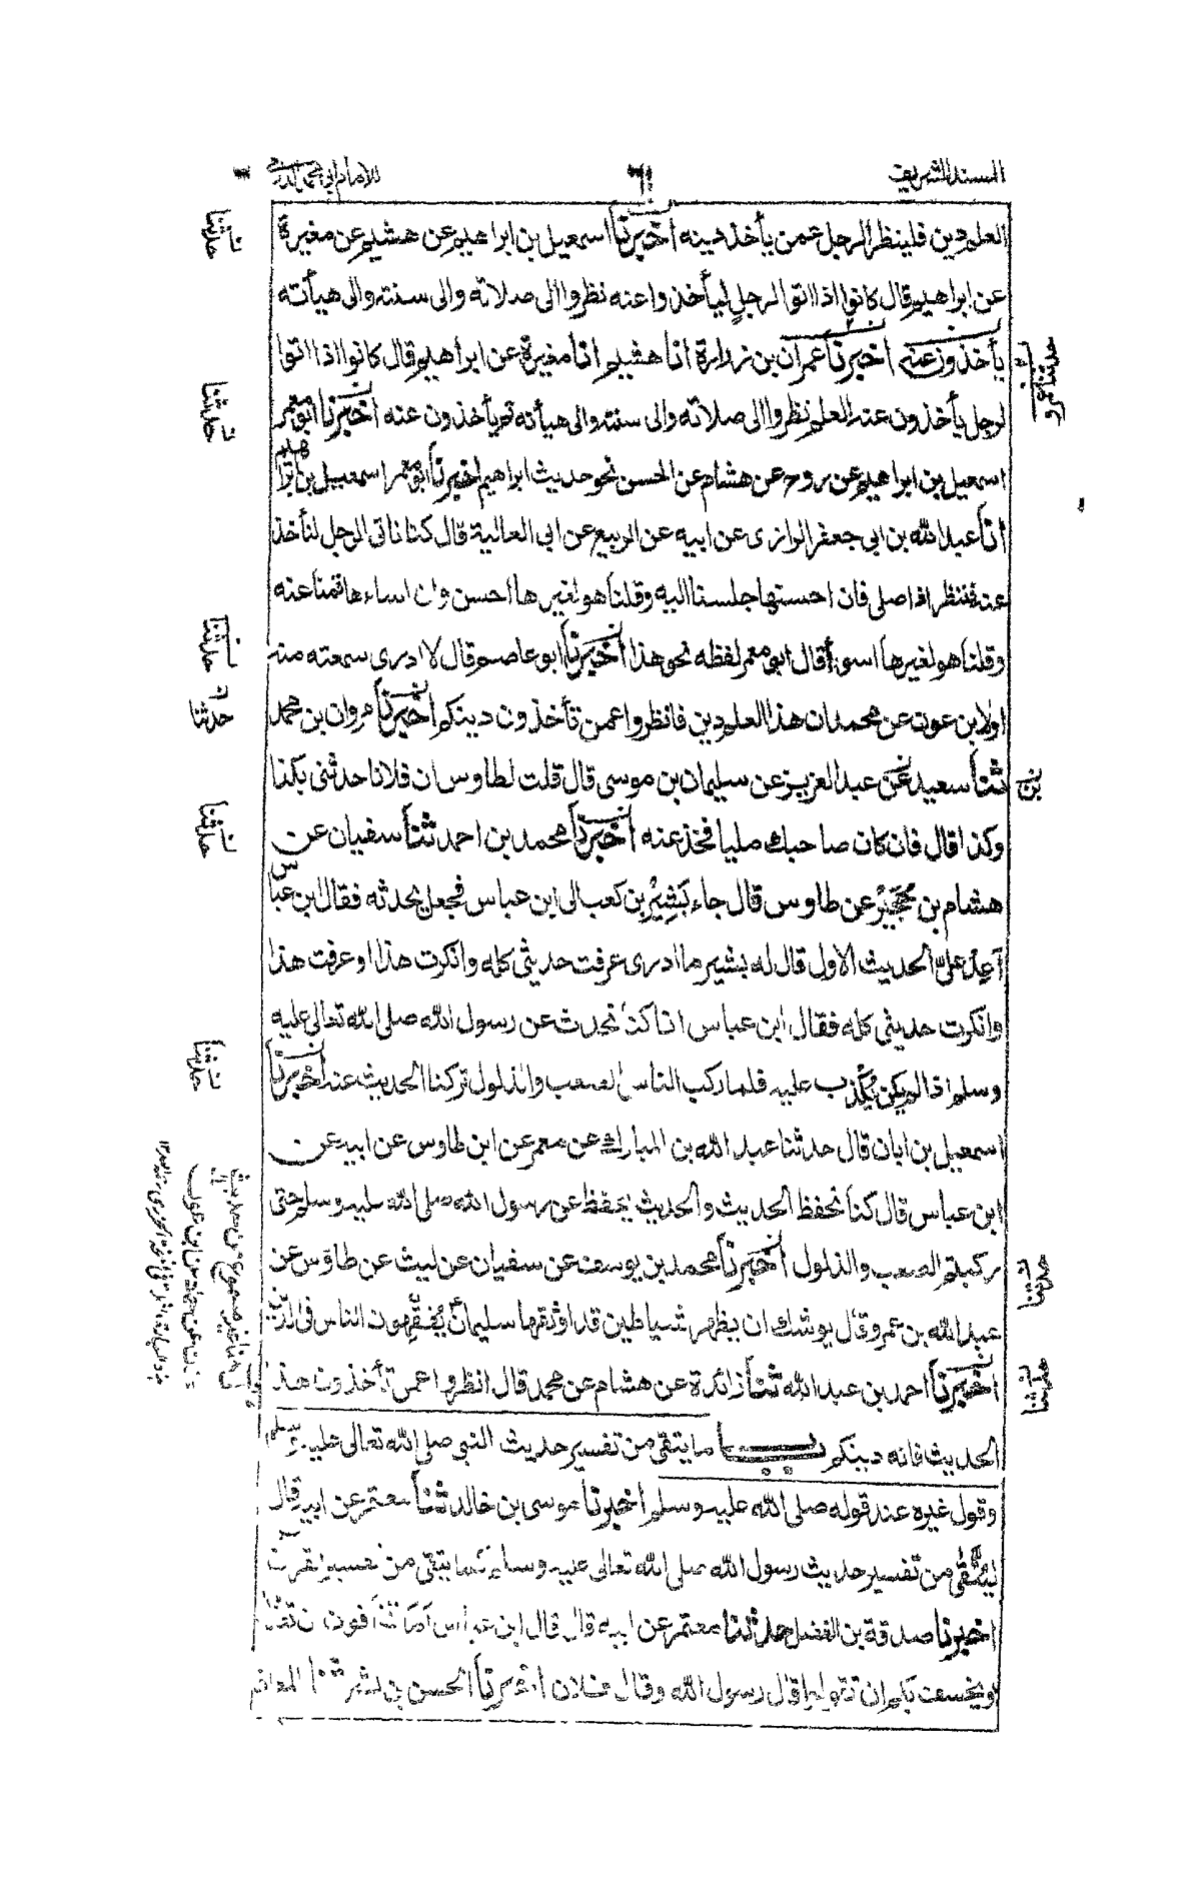 المسند الشريف
٦١
للامام ابي محمد الدارمي
العلم دين فلينظر الرجل عمن يأخذ دينه اخبرنا اسمعيل بن ابراهيم عن هشيم عن مغيرة
عن ابراهيم قال كانوا اذا اتوا الرجل ليأخذوا عنه نظروا الى صلاته والى سنته والى هيأته
يأخذون عنه اخبرنا عمران بن زرارة انا هشيم انا مغيرة عن ابراهيم قال كانوا اذا اتوا
لرجل يأخذون عنه العلم نظروا الى صلاته والى سنته والى هيأته ثم يأخذون عنه اخبرنا ابو معمر
اسمعيل بن ابراهيم عن روح عن هشام عن الحسن نحو حديث ابراهيم اخبرنا ابو معمر اسمعيل بن ابراهيم
انا عبد الله بن ابي جعفر الرازى عن ابيه عن الربيع عن ابي العالية قال كنا ناتى الرجل لنأخذ
عنه فننظر اذا صلى فان احسنها جلسنا اليه وقلنا هو لغيرها احسن وان اساءها قمنا عنه
وقلنا هو لغيرها اسوء قال ابو معمر لفظه نحو هذا اخبرنا ابو عاصم قال لا ادرى سمعته منه
اولا ابن عون عن محمد ان هذا العلم دين فانظروا عمن تأخذون دينكم اخبرنا مروان بن محمد
ثنا سعيد عن عبد العزيز عن سليمان بن موسى قال قلت لطاوس ان فلانا حدثنى بكذا
وكذا قال فان كان صاحبك مليا فخذ عنه اخبرنا محمد بن احمد ثنا سفيان عن
هشام بن حجير عن طاوس قال جاء بشير بن كعب الى ابن عباس فجعل يحدثه فقال ابن عباس
أعد على الحديث الاول قال له بشير ما ادرى عرفت حديثى كله وانكرت هذا او عرفت هذا
وانكرت حديثى كله فقال ابن عباس انا كنا نحدث عن رسول الله صلى الله تعالى عليه
وسلم اذ لم يكن يكذب عليه فلما ركب الناس الصعب والذلول تركنا الحديث عنه اخبرنا
اسمعيل بن ابان قال حدثنا عبد الله بن المبارك عن معمر عن ابن طاوس عن ابيه عن
ابن عباس قال كنا نحفظ الحديث والحديث يحفظ عن رسول الله صلى الله عليه وسلم حتى
ركبتم الصعب والذلول اخبرنا محمد بن يوسف عن سفيان عن ليث عن طاؤس عن
عبد الله بن عمرو قال يوشك ان يظهر شياطين قد اوثقها سليمان يفقهون الناس فى الدين
اخبرنا احمد بن عبد الله ثنا زائدة عن هشام عن محمد قال انظروا عمن تأخذون هذا
الحديث فانه دينكم باب ما يتقى من تفسير حديث النبى صلى الله تعالى عليه وسلم
وقول غيره عند قوله صلى الله عليه وسلم اخبرنا موسى بن خالد ثنا معتمر عن ابيه قال
ليتقى من تفسير حديث رسول الله صلى الله تعالى عليه وسلم كما يتقى من تفسير القرآن
اخبرنا صدقة بن الفضل حدثنا معتمر عن ابيه قال قال ابن عباس اما تخافون ان تعذبوا
ويخسف بكم ان تقولوا قال رسول الله وقال فلان اخبرنا الحسن بن بشر ثنا المعافى
حدثنا
حدثنا عمرو
حدثنا
حدثنا
حدثنا
بن
حدثنا
حدثنا
حدثنا
حدثنا